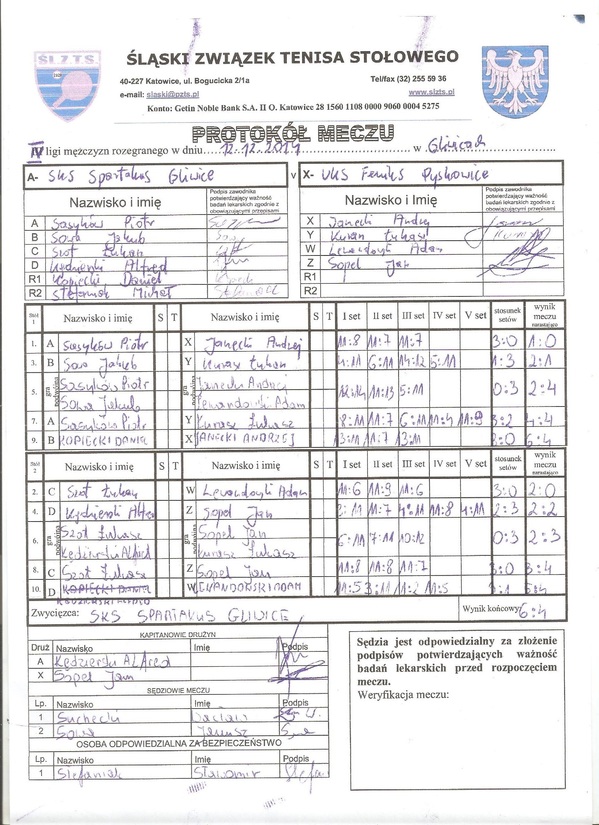 ŚL.Z.T.S.
ŚLĄSKI ZWIĄZEK TENISA STOŁOWEGO
40-227 Katowice, ul. Bogucicka 2/1a Tel/fax (32) 255 59 36
e-mail: slaski@pzts.pl www.slzts.pl
Konto: Getin Noble Bank S.A. II O. Katowice 28 1560 1108 0000 9060 0004 5275
PROTOKÓŁ MECZU
IV ligi mężczyzn rozegranego w dniu 12.12.2014 w Gliwicach
A- SKS Spartakus Gliwice v X- UKS Feniks Pyskowice
Nazwisko i Imię Podpis zawodnika potwierdzający ważność badań lekarskich zgodnie z obowiązującymi przepisami Nazwisko i Imię Podpis zawodnika potwierdzający ważność badań lekarskich zgodnie z obowiązującymi przepisami
A Sasyków Piotr X Janecki Andrzej
B Sowa Jakub Y Kuraś Łukasz
C Szot Łukasz W Lewandowski Adam
D Kędzierski Alfred Z Sopel Jan
R1 Kopiecki Daniel R1
R2 Stefaniak Michał R2
Stół 1 Nazwisko i imię S T Nazwisko i imię S T I set II set III set IV set V set stosunek setów wynik meczu narastająco
1. A Sasyków Piotr X Janecki Andrzej 11:8 11:7 11:7 3:0 1:0
3. B Sowa Jakub Y Kuraś Łukasz 4:11 6:11 14:12 5:11 1:3 2:1
5. gra podwójna Sasyków Piotr gra podwójna Janecki Andrzej 11:13 5:11 0:3 2:4
Sowa Jakub Lewandowski Adam
7. A Sasyków Piotr Y Kuraś Łukasz 8:11 11:7 6:11 11:4 11:9 3:2 4:4
9. B KOPIECKI DANIEL X JANECKI ANDRZEJ 13:11 11:7 13:11 3:0 6:4
Stół 2 Nazwisko i imię S T Nazwisko i imię S T I set II set III set IV set V set stosunek setów wynik meczu narastająco
2. C Szot Łukasz W Lewandowski Adam 11:6 11:9 11:6 3:0 2:0
4. D Kędzierski Alfred Z Sopel Jan 11:7 11:8 4:11 2:3 2:2
6. gra podwójna Szot Łukasz Sopel Jan 6:11 7:11 10:12 0:3 2:3
Kędzierski Alfred Kuraś Łukasz
8. C Szot Łukasz Z Sopel Jan 11:8 11:8 11:7 3:0 3:4
10. D KOPIECKI DANIEL W LEWANDOWSKI ADAM 11:5 3:11 11:2 11:5 3:1 5:4
KĘDZIERSKI ALFRED
Zwycięzca: SKS SPARTAKUS GLIWICE Wynik końcowy 6:4
KAPITANOWIE DRUŻYN
Druż Nazwisko Imię Podpis
A Kędzierski Alfred
X Sopel Jan
SĘDZIOWIE MECZU
Lp. Nazwisko Imię Podpis
1 Suchecki Wacław
2 Sowa Janusz
OSOBA ODPOWIEDZIALNA ZA BEZPIECZEŃSTWO
Lp. Nazwisko Imię Podpis
1 Stefaniak Sławomir
Sędzia jest odpowiedzialny za złożenie
podpisów potwierdzających ważność
badań lekarskich przed rozpoczęciem
meczu.
Weryfikacja meczu: